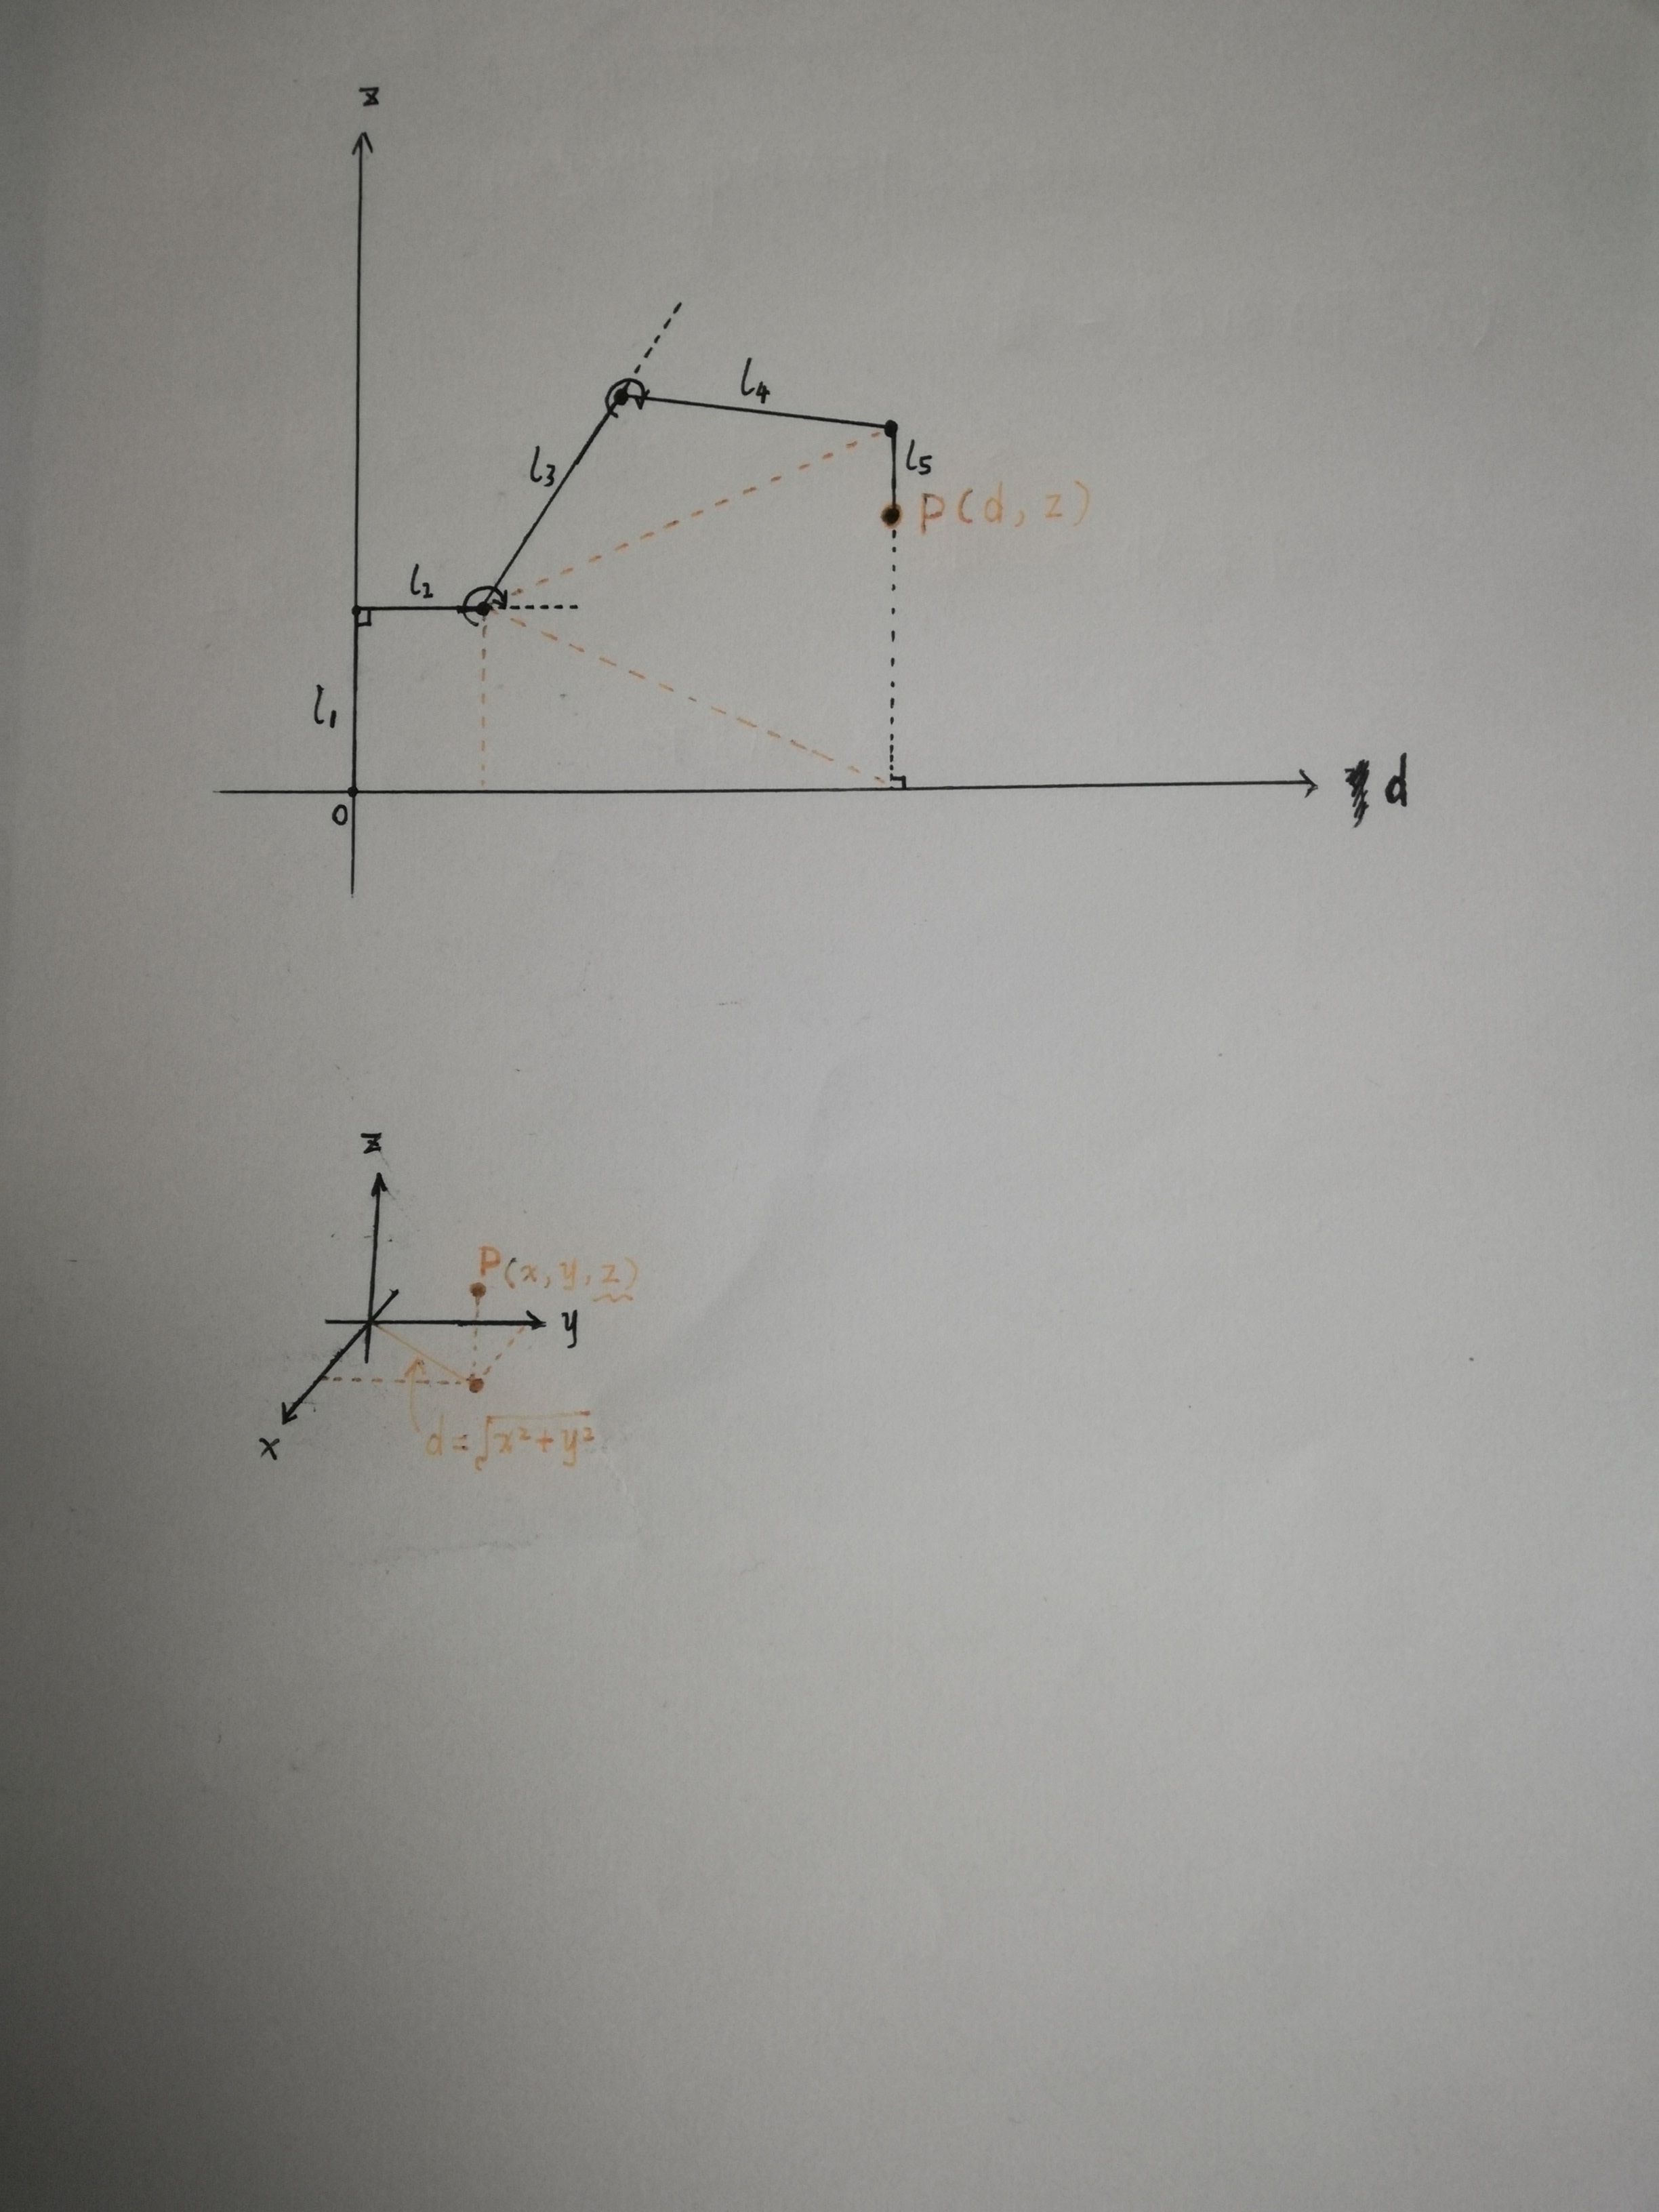 z
l₄
l₃
l₅
P(d, z)
l₂
l₁
d
0
z
P(x, y, z)
y
x
d=√x²+y²